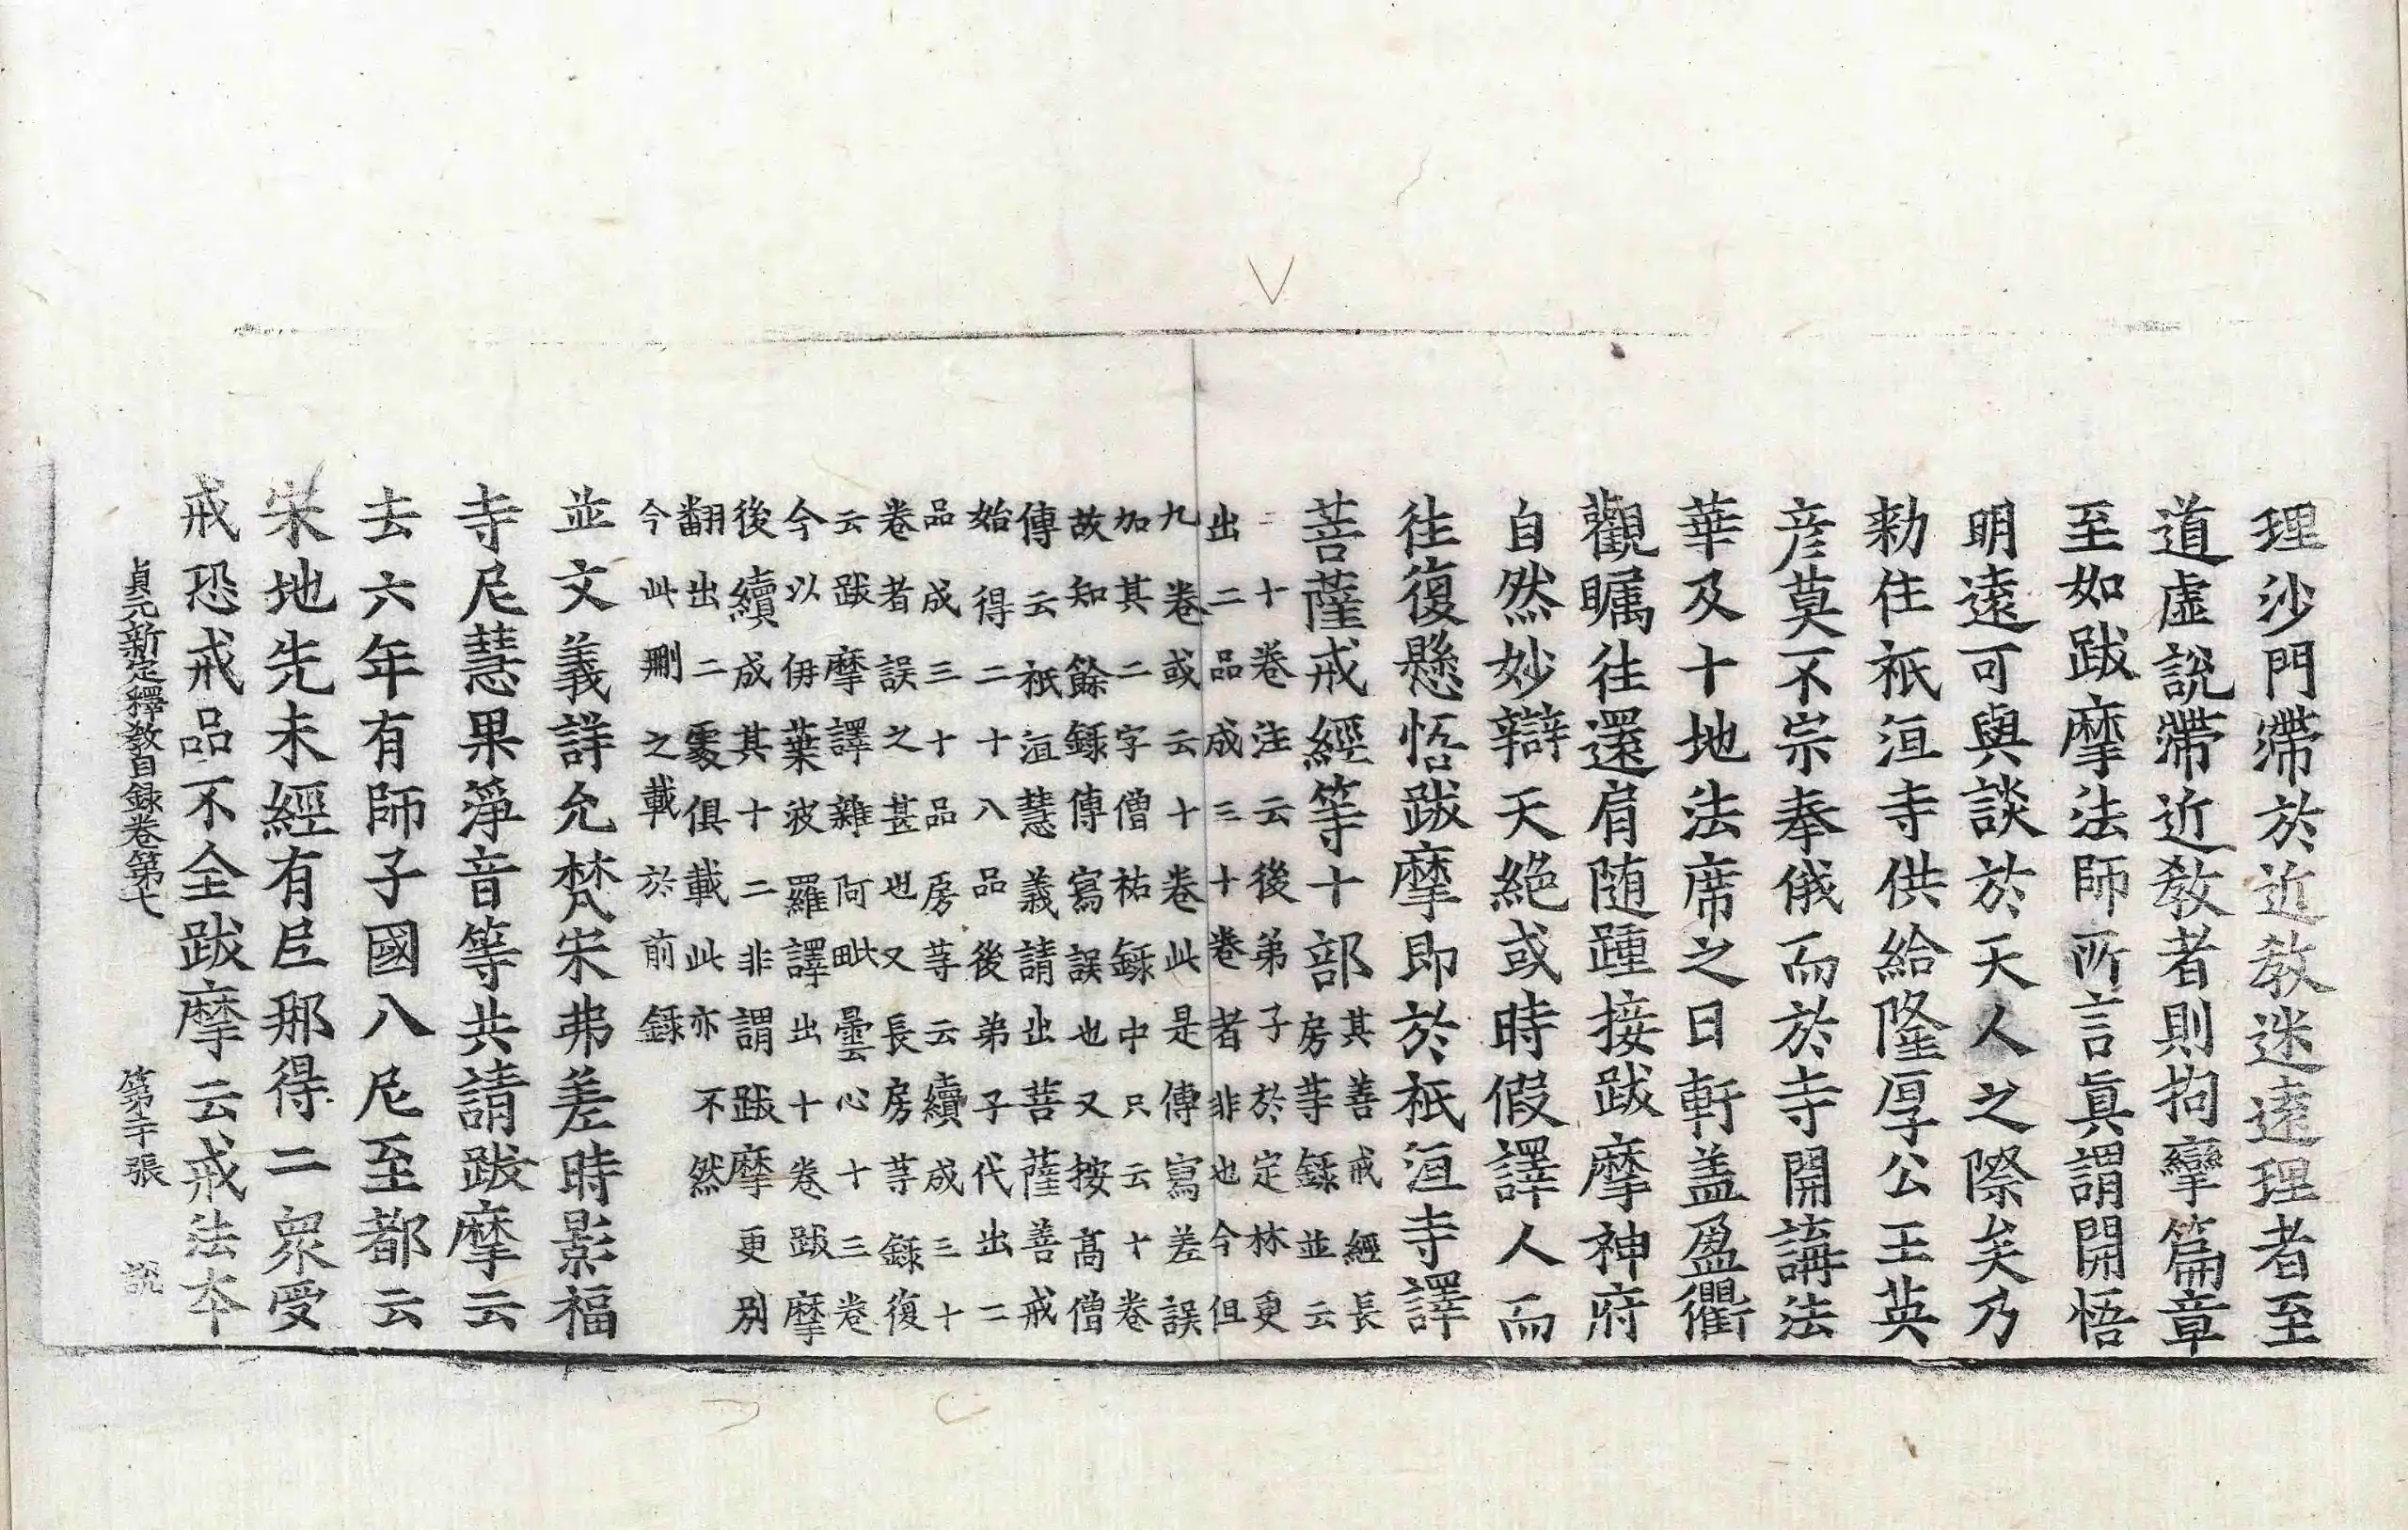 理沙門滯於近教迷遠理者至
道虛說滯近教者則拘攣篇章
至如跋摩法師所言眞謂開悟
明遠可與談於天人之際矣乃
勑住祇洹寺供給隆厚公王英
彦莫不宗奉俄而於寺開講法
華及十地法席之日軒盖盈衢
觀矚往還肩随踵接跋摩神府
自然妙辯天絕或時假譯人而
往復懸悟跋摩即於祇洹寺譯
菩薩戒經等十部其善戒經長
房䓁錄並云
二十卷注云後弟子於定林更
出二品成三十卷者非也今但
九卷或云十卷此是傳寫差誤
加其二字僧祐錄中只云十卷
故知餘錄傳寫誤也又按髙僧
傳云祇洹慧義請出菩薩善戒
始得二十八品後弟子代出二
品成三十品房䓁云續成三十
卷者誤之甚也又長房䓁錄復
云跋摩譯雜阿毗曇心十三卷
今以伊葉波羅譯出十卷跋摩
後續成其十二非謂跋摩更別
翻出二處俱載此亦不然
今此刪之載於前錄
並文義詳允梵宋弗差時影福
寺尼慧果淨音等共請跋摩云
去六年有師子國八尼至都云
宋地先未經有尼那得二衆受
戒恐戒品不全跋摩云戒法本
貞元新定釋教目録卷第七 第二十張 說